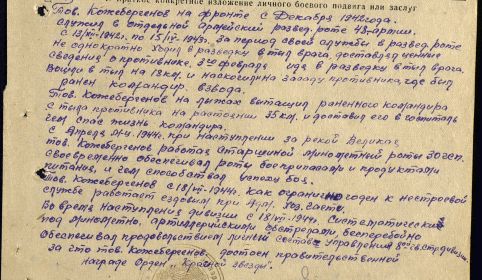 краткое конкретное изложение личного боевого подвига или заслуг
Тов. Кожебергенов на фронте с Декабря 1942 года.
служил в отдельной Армейской развед. роте 43 армии.
с 13/XII-42г. по 15/IV-1943г. За период своей службы в развед. роте
не однократно ходил в разведку в тыл врага, доставлял ценные
сведения о противнике. 3го февраля идя в разведку в тыл врага,
вошли в тыл на 18км. и наскочили на засаду противника, где был
ранен командир взвода.
Тов. Кожебергенов на лыжах вытащил раненного командира
с тыла противника на растоянии 35 км, и доставил его в госпиталь
чем спас жизнь командира.
с Апреля 1944, при наступлении за рекой Великая
тов. Кожебергенов работая Старшиной минометной роты 30 гсп.
своевременно обеспечивал роту боеприпасами и продуктами
питания, и чем способствовал успеху боя.
Тов. Кожебергенов с 18/VII-1944г. как ограничено годен к нестроевой
службе работает ездовым при Адм. хоз. части.
Во время наступления дивизии с 18/VII-1944г. Систематически
под минометно, артиллерийскими обстрелами, бесперебойно
обеспечивал продовольствием личный состав управления стр. дивизии.
за что тов. Кожебергенов, достоен правительственной
награде Орден "Красной звезды".